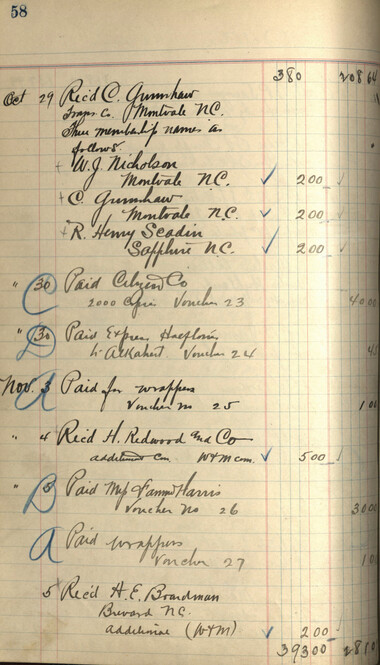 58
380 20864
Oct 29 Rec'd C. Grimshaw
Montvale N.C.
Three membership names as
follows
W. J. Nicholson
Montvale N.C. 200
C. Grimshaw
Montvale N.C. 200
R. Henry Scadin
Sapphire N.C. 200
C " 30 Paid Citizen Co
2000 Voucher 23 4000
D " 30 Paid Express
Voucher 24
A Nov. 3 Paid for wrappers
Voucher no 25 100
" 4 Rec'd H. Redwood and Co
additional W & M com. 500
B " 5 Paid Harris
Voucher No 26 3000
A Paid wrappers
Voucher 27 100
5 Rec'd H. E. Boardman
Brevard N.C.
additional (W & M) 200
39300 2810